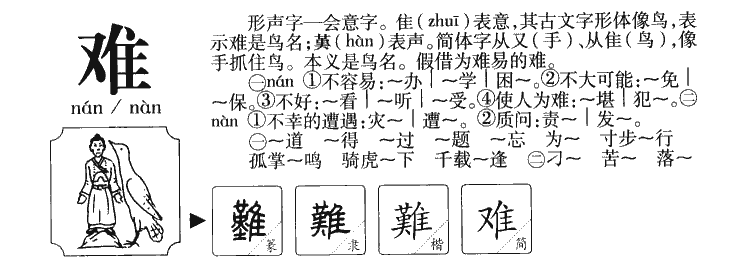 难
nán / nàn
形声字一会意字。隹(zhuī)表意,其古文字形体像鸟,表
示难是鸟名;𦰩(hàn)表声。简体字从又(手)、从隹(鸟),像
手抓住鸟。本义是鸟名。假借为难易的难。
㊀nán ①不容易:~办|~学|困~。②不大可能:~免|
~保。③不好:~看|~听|~受。④使人为难:~堪|犯~。㊁
nàn ①不幸的遭遇:灾~|遭~。②质问:责~|发~。
㊀~道 ~得 ~过 ~题 ~忘 为~ 寸步~行
孤掌~鸣 骑虎~下 千载~逢 ㊁刁~ 苦~ 落~
難 篆 難 隶 難 楷 难 简